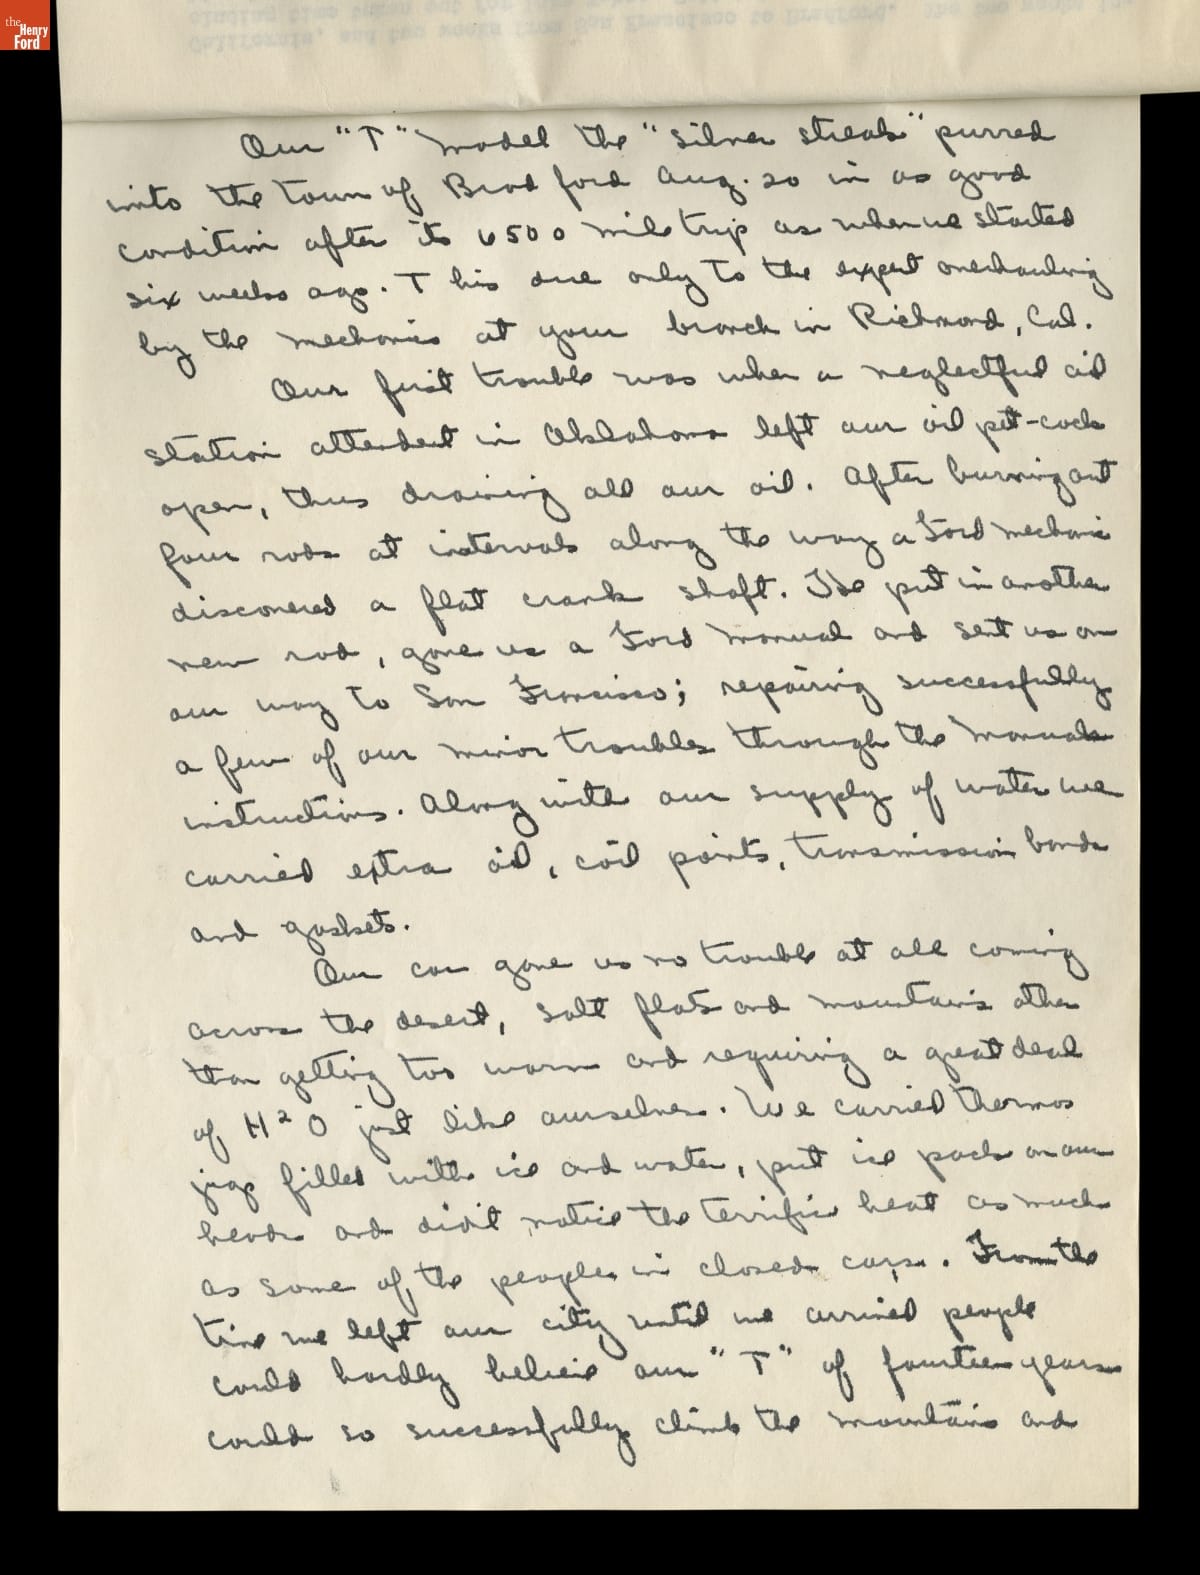 the
Henry
Ford
California, and two weeks from San Francisco to Bradford. The two weeks in-
cluding time taken out for
Our "T" model the "silver streak" purred
into the town of Bradford Aug. 20 in as good
condition after its 6500 mile trip as when we started
six weeks ago. This due only to the expert overhauling
by the mechanics at your branch in Richmond, Cal.
Our first trouble was when a neglectful oil
station attendent in Oklahoma left our oil pet-cock
open, thus draining all our oil. After burning out
four rods at intervals along the way a Ford mechanic
discovered a flat crank shaft. He put in another
new rod, gave us a Ford Manual and sent us on
our way to San Francisco; repairing successfully
a few of our minor troubles through the Manuals
instructions. Along with our supply of water we
carried extra oil, coil points, transmission bands
and gaskets.
Our car gave us no trouble at all coming
across the desert, salt flats and mountains other
than getting too warm and requiring a great deal
of H2O just like ourselves. We carried thermos
jugs filled with ice and water, put ice packs on our
heads and didn't notice the terrific heat as much
as some of the people in closed cars. From the
time we left our city until we arrived people
could hardly believe our "T" of fourteen years
could so successfully climb the mountains and